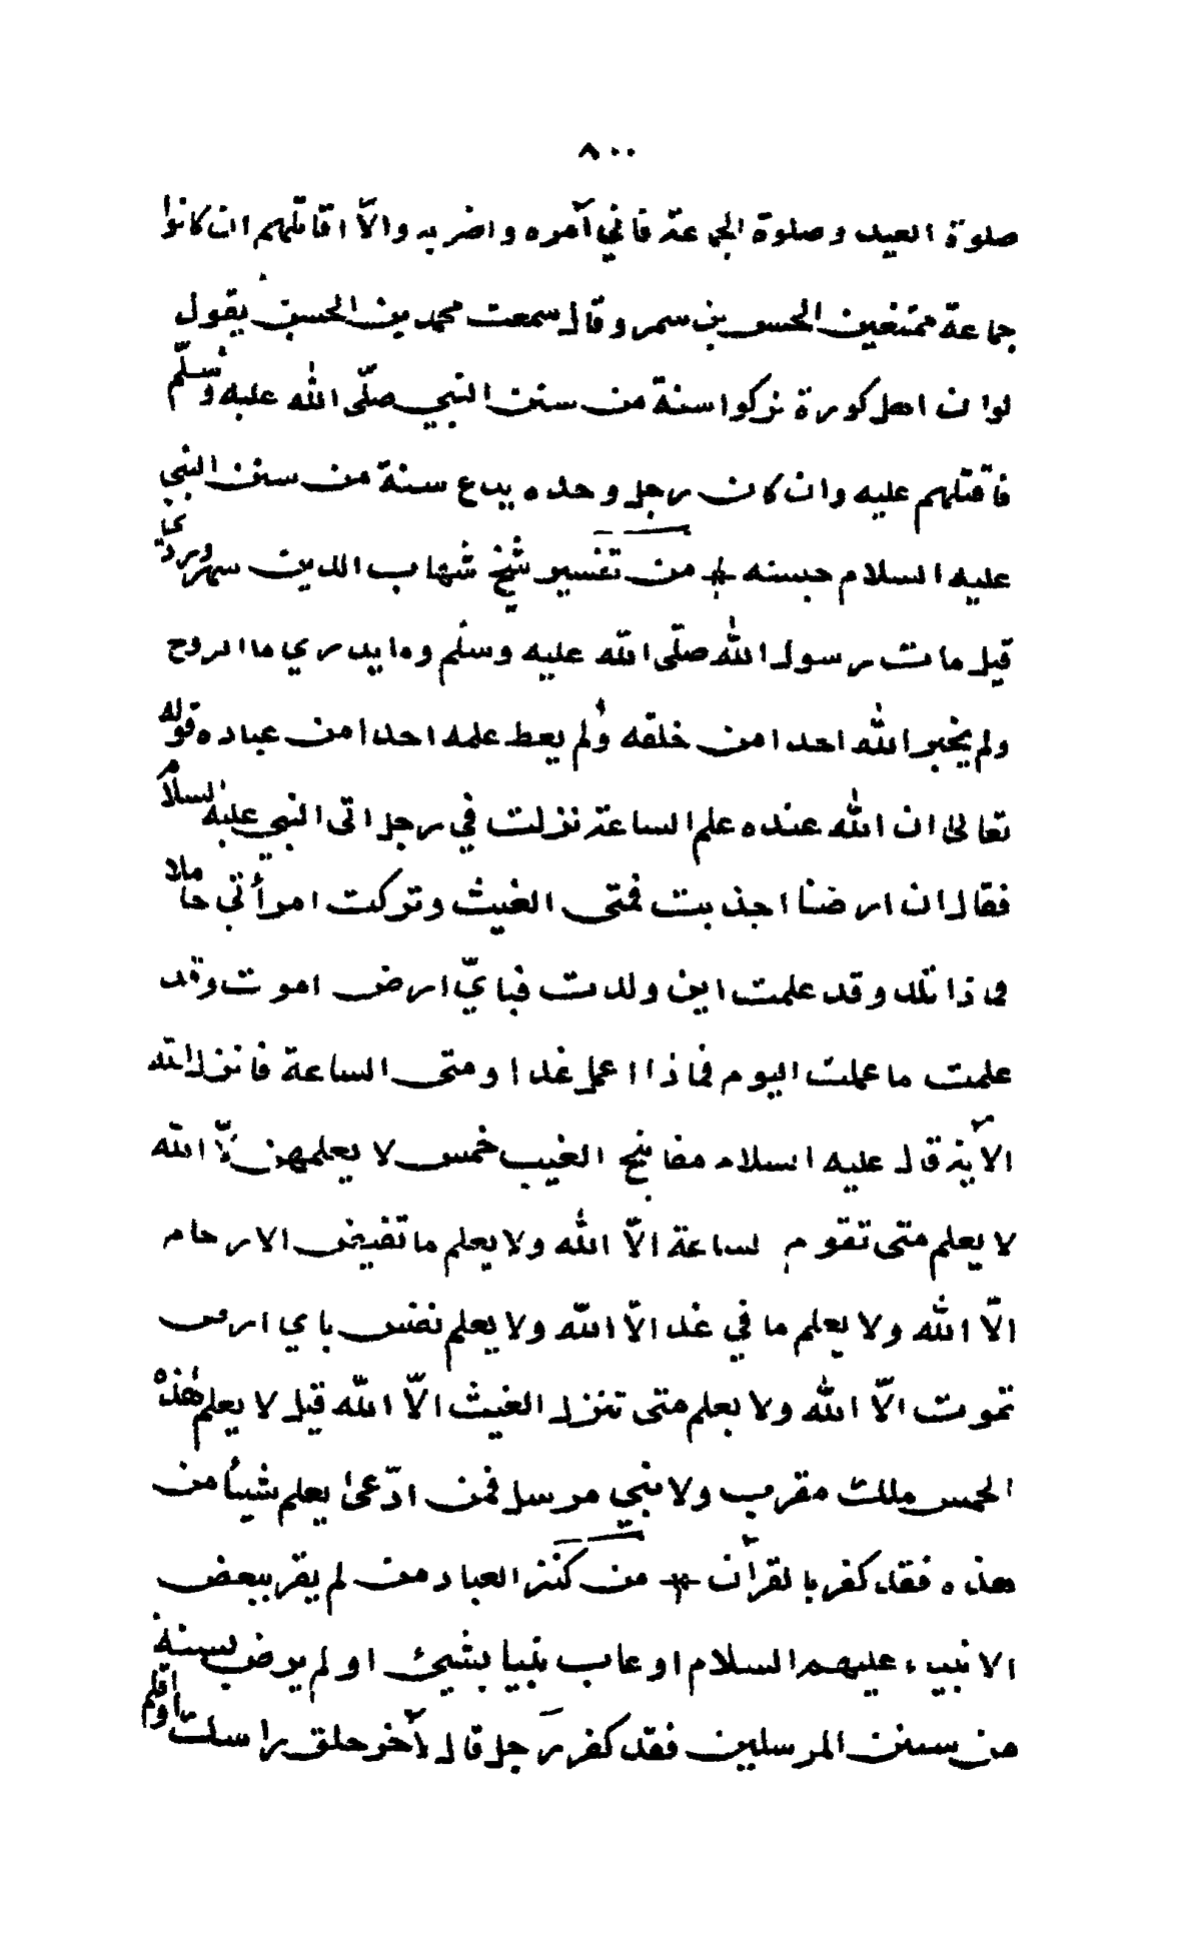 ٨٠٠
صلوة العيد وصلوة الجمعة فاني آمره واضربه والاّ اقاتلهم ان كانوا
جماعة ممتنعين الحسن بن سمر وقال سمعت محمد بن الحسن يقول
لو ان اهل كورة تركوا سنة من سنن النبي صلّى الله عليه وسلّم
قاتلتهم عليه وان كان رجل وحده يدع سنة من سنن النبي
عليه السلام حبسته من تفسير شيخ شهاب الدين سهروردي
قيل مات رسول الله صلّى الله عليه وسلم وما يدري ما الروح
ولم يخبر الله احدا من خلقه ولم يعط علمه احدا من عباده قوله
تعالى ان الله عنده علم الساعة نزلت في رجل اتى النبي عليه السلام
فقال ان ارضنا اجذبت فمتى الغيث وتركت امرأتي حاملا
فماذا تلد وقد علمت اين ولدت فبايّ ارض اموت وقد
علمت ما عملت اليوم فماذا اعمل غدا ومتى الساعة فانزل الله
الآية قال عليه السلام مفاتيح الغيب خمس لا يعلمهن الاّ الله
لا يعلم متى تقوم لساعة الاّ الله ولا يعلم ما تغيض الارحام
الاّ الله ولا يعلم ما في غد الاّ الله ولا يعلم نفس باي ارض
تموت الاّ الله ولا يعلم متى تنزل الغيث الاّ الله قيل لا يعلم هذه
الخمس ملك مقرب ولا نبي مرسل فمن ادّعى يعلم شيأ من
هذه فقد كفر بالقرآن من كنز العباد من لم يقر ببعض
الانبياء عليهم السلام او عاب نبيا بشيئ او لم يرض بسنة
من سنن المرسلين فقد كفر رجل قال لآخر حلق راسك وقلم